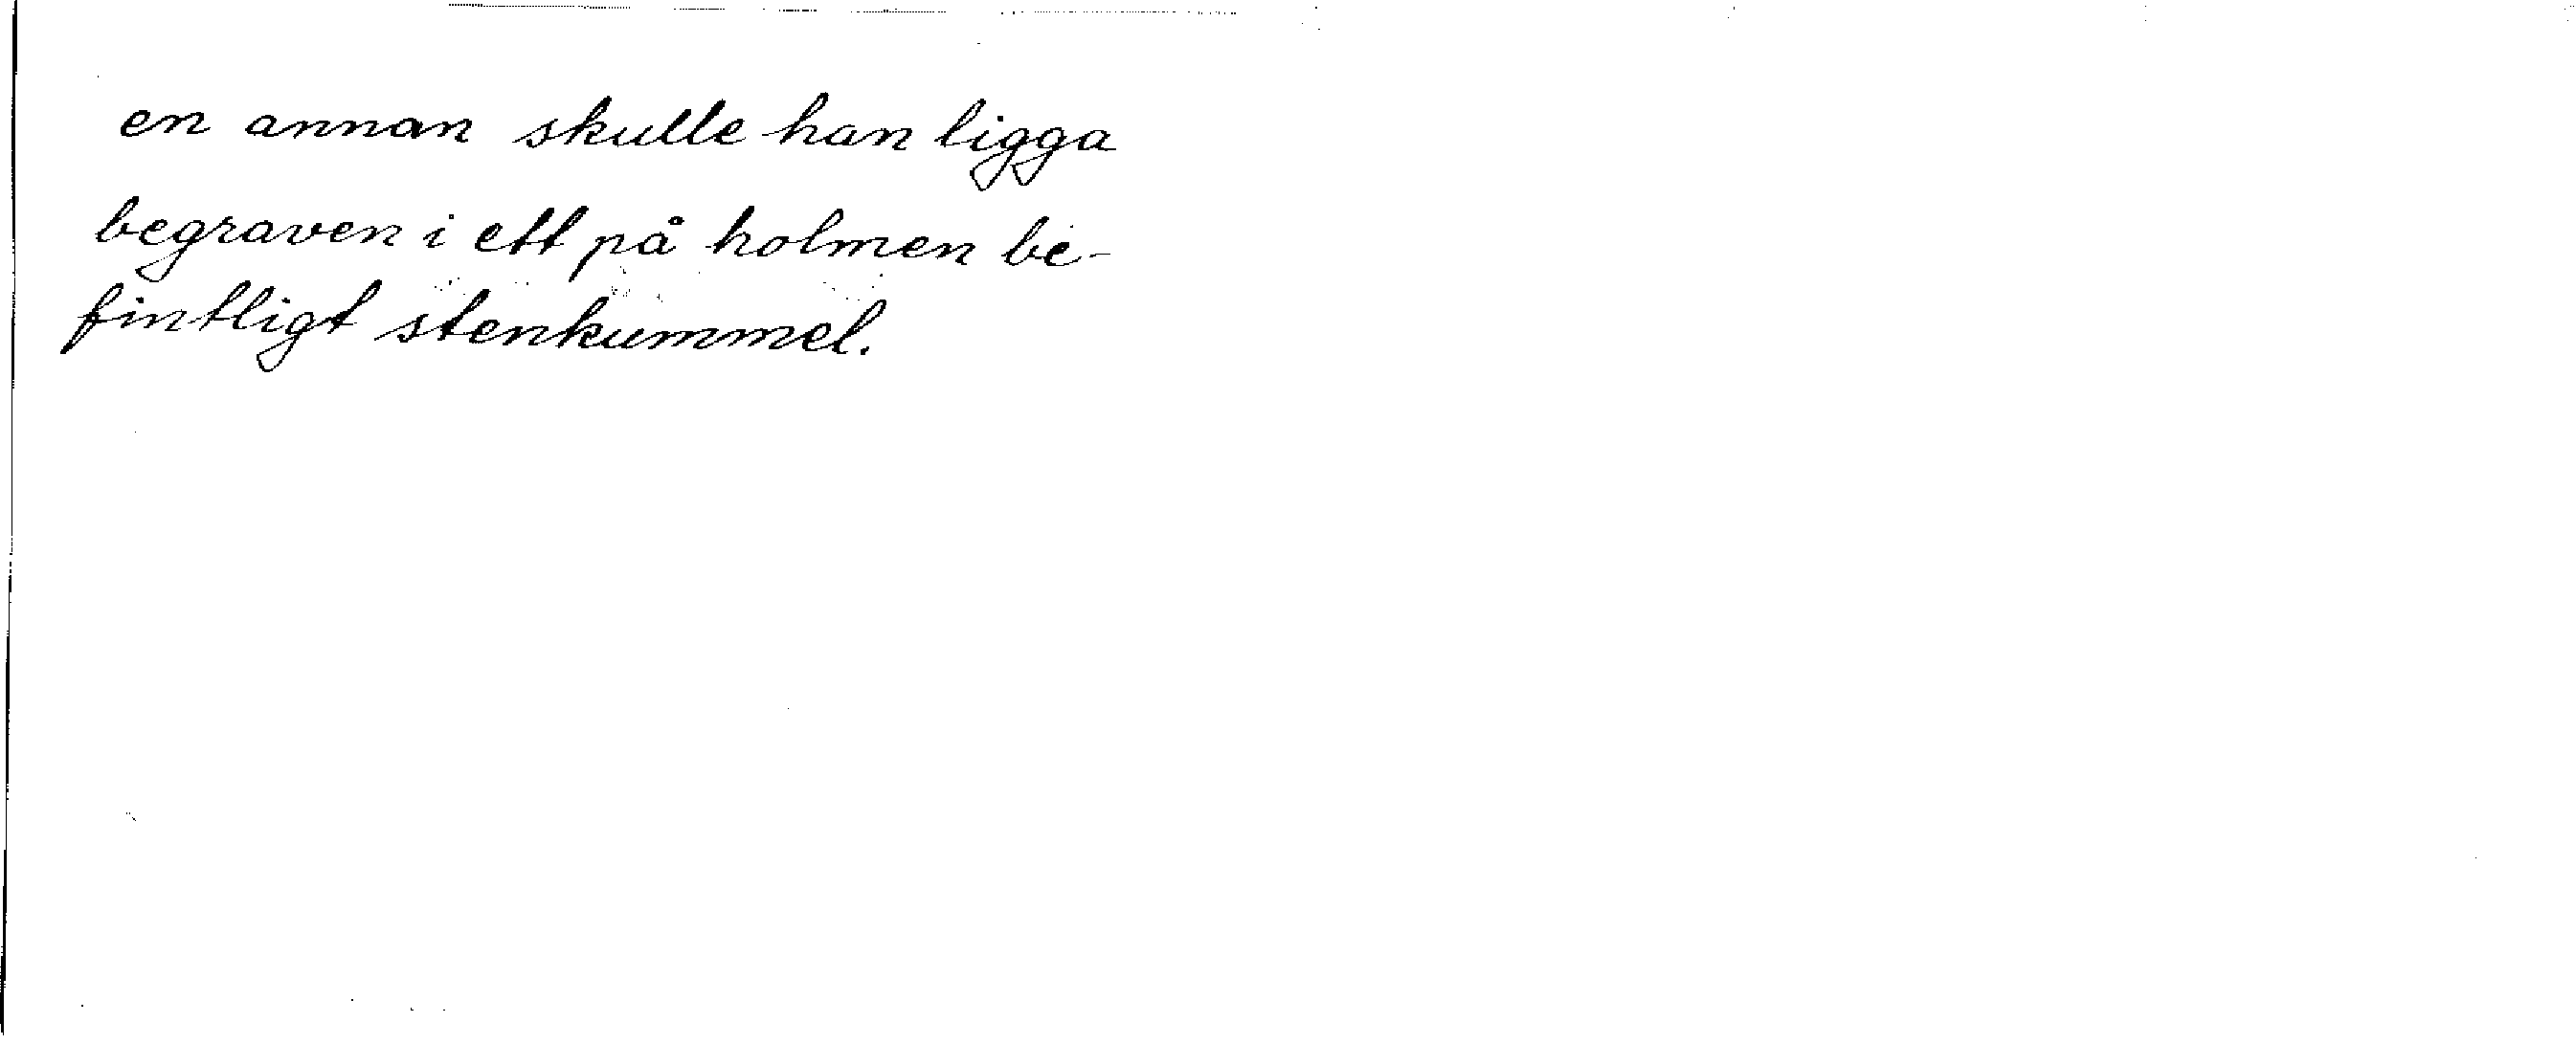 en annan skulle han ligga
begraven i ett på holmen be-
fintligt stenkummel.